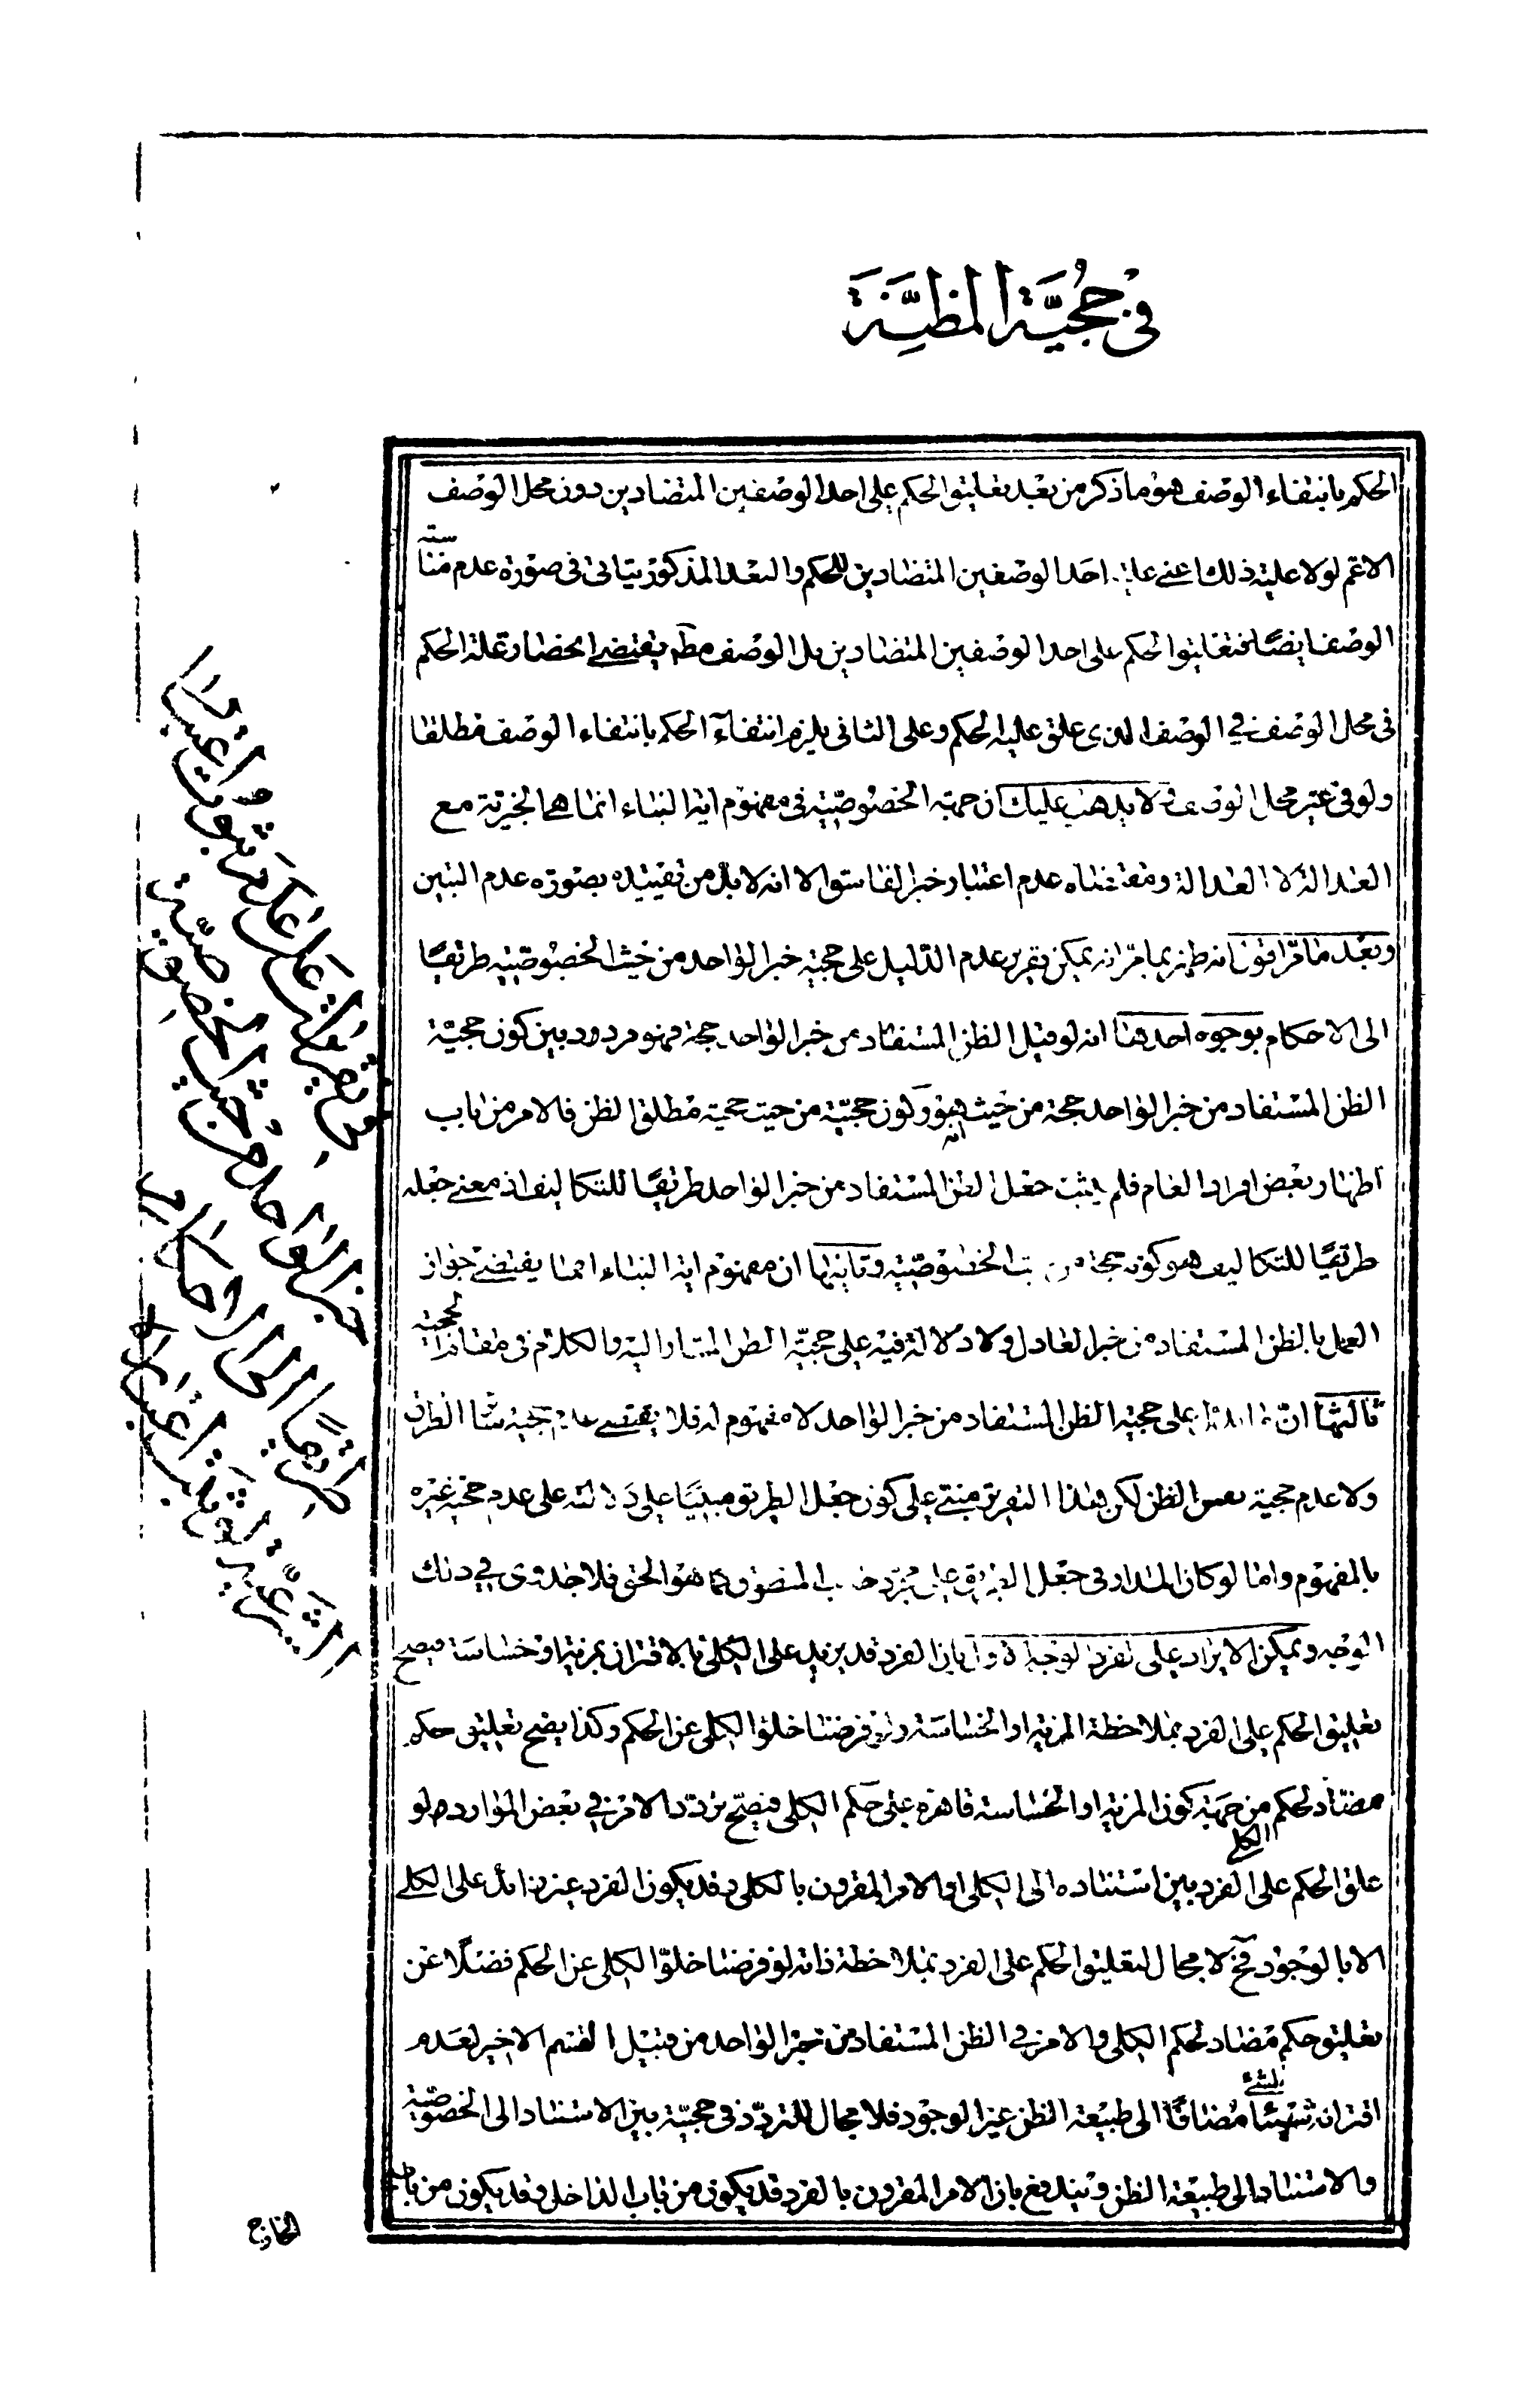 في حجية المظنة
الحكم بانتفاء الوصف هو ما ذكر من بعد تعليق الحكم على احد الوصفين المتضادين دون محل الوصف
الاعم لولا علية ذلك اعنى علية احد الوصفين المتضادين للحكم والبعد المذكور يتاتى فى صورة عدم مناسبة
الوصف ايضا فتعليق الحكم على احد الوصفين المتضادين بل الوصف مط يقتضى انحصار علة الحكم
فى محل الوصف في الوصف الذى علق عليه الحكم وعلى الثانى يلزم انتفاء الحكم بانتفاء الوصف مطلقا
ولو فى غير محل الوصف لا يذهب عليك ان جهة الخصوصية فى مفهوم اية النباء انما هى الخبرية مع
العدالة لا العدالة ومقتضاه عدم اعتبار خبر الفاسق الا انه لا بد من تقييده بصورة عدم التبين
وبعد ما مر اقول انه ظهر بما مر انه يمكن تقرير عدم الدليل على حجية خبر الواحد من حيث الخصوصية طريقا
الى الاحكام بوجوه احدها انه لو قيل الظن المستفاد من خبر الواحد حجة فهو مردود بين كون حجية
الظن المستفاد من خبر الواحد حجة من حيث انه هو وكون حجيته من حيث حجية مطلق الظن فالامر من باب
اظهار بعض افراد العام فلم يثبت جعل الظن المستفاد من خبر الواحد طريقا للتكاليف اذ معنى جعله
طريقا للتكاليف هو كونه حجة من الخصوصية وثانيها ان مفهوم اية النباء انما يقتضى جواز
العمل بالظن المستفاد من خبر العادل ولا دلالة فيه على حجية الظن المشار اليه والكلام فى مقام الحجية
ثالثها ان على حجية الظن المستفاد من خبر الواحد لا مفهوم له فلا يقتضى عدم حجية سائر الطرق
ولا عدم حجية نفس الظن لكن هذا التقرير مبنى على كون جعل الطريق مبنيا على دلالته على عدم حجية غيره
بالمفهوم واما لو كان المدار فى جعل الطريق على مجرد المنطوق كما هو الحق فلا جدوى في ذلك
الوجه ويمكن الايراد على بان الفرد قد يزيد على الكلى بالاقتران بمزية او خساسة فيصح
تعليق الحكم على الفرد بملاحظة المزية او الخساسة ولو فرضنا خلو الكلى عن الحكم وكذا يصح تعليق حكم
مضاد لحكم الكلى من جهة كون المزية او الخساسة قاهرة على حكم الكلى فيصح تردد الامر في بعض الموارد لو
علق الحكم على الفرد بين استناده الى الكلى او الامر المقرون بالكلى وقد يكون الفرد غير زائد على الكلى
الا بالوجود فح لا مجال لتعليق الحكم على الفرد بملاحظة ذاته لو فرضنا خلو الكلى عن الحكم فضلا عن
تعليق حكم مضاد لحكم الكلى والامر في الظن المستفاد من خبر الواحد من قبيل القسم الاخير لعدم
اقترانه بشىء شيئا مضافا الى طبيعة الظن غير الوجود فلا مجال للتردد فى حجيته بين الاستناد الى الخصوصية
والاستناد الى طبيعة الظن ويندفع بان الامر المقرون بالفرد قد يكون من باب الداخل وقد يكون من باب
الخارج
فى تقريرات على عدم ثبوت اعتبار
خبر الواحد من حيث الخصوصية
طريقا الى الاحكام
الشرعية لو ثبت اعتباره